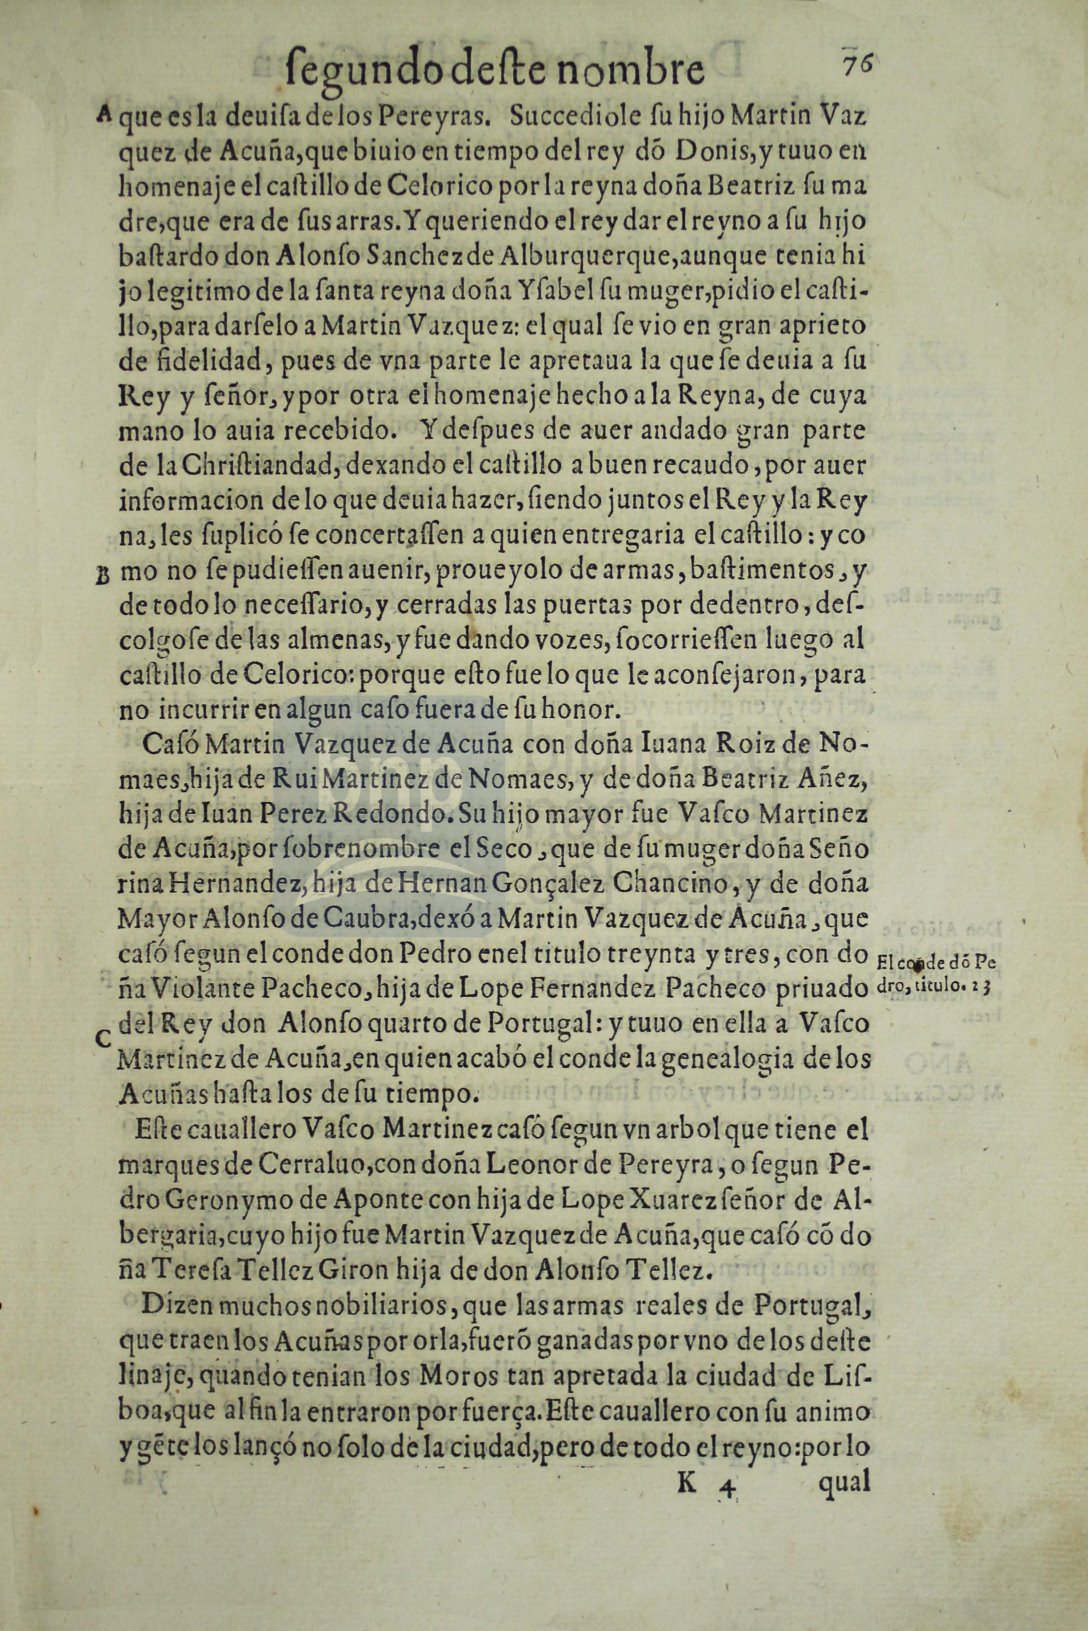 ſegundo deſte nombre 76
A que es la deuiſa de los Pereyras. Succediole ſu hijo Martin Vaz
quez de Acuña, que biuio en tiempo del rey dõ Donis, y tuuo en
homenaje el caſtillo de Celorico por la reyna doña Beatriz ſu ma
dre, que era de ſus arras. Y queriendo el rey dar el reyno a ſu hijo
baſtardo don Alonſo Sanchez de Alburquerque, aunque tenia hi
jo legitimo de la ſanta reyna doña Yſabel ſu muger, pidio el caſti-
llo, para darſelo a Martin Vazquez: el qual ſe vio en gran aprieto
de fidelidad, pues de vna parte le apretaua la que ſe deuia a ſu
Rey y ſeñor, y por otra el homenaje hecho a la Reyna, de cuya
mano lo auia recebido. Y deſpues de auer andado gran parte
de la Chriſtiandad, dexando el caſtillo a buen recaudo, por auer
informacion de lo que deuia hazer, ſiendo juntos el Rey y la Rey
na, les ſuplicó ſe concertaſſen a quien entregaria el caſtillo: y co
B mo no ſe pudieſſen auenir, proueyolo de armas, baſtimentos, y
de todo lo neceſſario, y cerradas las puertas por dedentro, deſ-
colgoſe de las almenas, y fue dando vozes, ſocorrieſſen luego al
caſtillo de Celorico: porque eſto fue lo que le aconſejaron, para
no incurrir en algun caſo fuera de ſu honor.
Caſó Martin Vazquez de Acuña con doña Iuana Roiz de No-
maes, hija de Rui Martinez de Nomaes, y de doña Beatriz Añez,
hija de Iuan Perez Redondo. Su hijo mayor fue Vaſco Martinez
de Acuña, por ſobrenombre el Seco, que de ſu muger doña Seño
rina Hernandez, hija de Hernan Gonçalez Chancino, y de doña
Mayor Alonſo de Caubra, dexó a Martin Vazquez de Acuña, que
caſó ſegun el conde don Pedro en el titulo treynta y tres, con do
El conde dõ Pe
ña Violante Pacheco, hija de Lope Fernandez Pacheco priuado
dro, titulo. 23
C del Rey don Alonſo quarto de Portugal: y tuuo en ella a Vaſco
Martinez de Acuña, en quien acabó el conde la genealogia de los
Acuñas haſta los de ſu tiempo.
Eſte cauallero Vaſco Martinez caſó ſegun vn arbol que tiene el
marques de Cerraluo, con doña Leonor de Pereyra, o ſegun Pe-
dro Geronymo de Aponte con hija de Lope Xuarez ſeñor de Al-
bergaria, cuyo hijo fue Martin Vazquez de Acuña, que caſó cõ do
ña Tereſa Tellez Giron hija de don Alonſo Tellez.
Dizen muchos nobiliarios, que las armas reales de Portugal,
que traen los Acuñas por orla, fuerõ ganadas por vno de los deſte
linaje, quando tenian los Moros tan apretada la ciudad de Liſ-
boa, que al fin la entraron por fuerça. Eſte cauallero con ſu animo
y gẽte los lançó no ſolo de la ciudad, pero de todo el reyno: por lo
K 4 qual